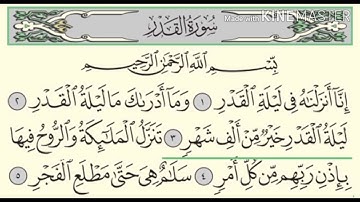 Made with KINEMASTER
سُورَةُ الْقَدْرِ
بِسْمِ اللَّهِ الرَّحْمَٰنِ الرَّحِيمِ
إِنَّا أَنزَلْنَاهُ فِي لَيْلَةِ الْقَدْرِ ١ وَمَا أَدْرَاكَ مَا لَيْلَةُ الْقَدْرِ ٢
لَيْلَةُ الْقَدْرِ خَيْرٌ مِّنْ أَلْفِ شَهْرٍ ٣ تَنَزَّلُ الْمَلَائِكَةُ وَالرُّوحُ فِيهَا
بِإِذْنِ رَبِّهِم مِّن كُلِّ أَمْرٍ ٤ سَلَامٌ هِيَ حَتَّىٰ مَطْلَعِ الْفَجْرِ ٥